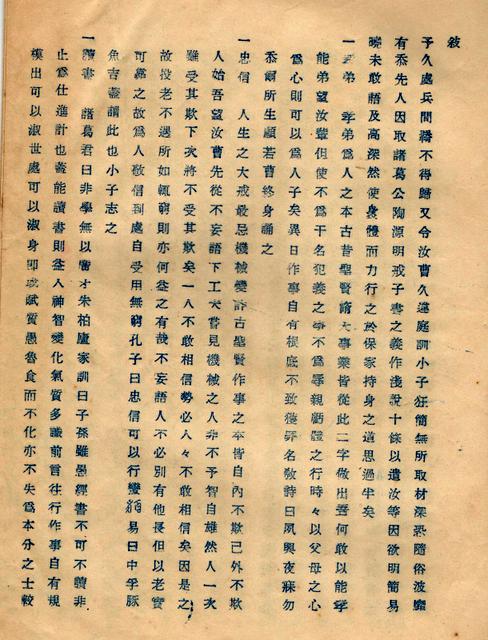 敍
予久處兵間矞不得歸又令汝曹久違庭訓小子狂簡無所取材深恐隨俗波靡
有忝先人因取諸葛公陶淵明戒子書之義作淺說十條以遺汝等因欲明簡易
曉未敢語及高深然使身體而力行之於保家持身之道思過半矣
一孝弟　孝弟爲人之本古昔聖賢諸大事業皆從此二字做出吾何敢以能孝
能弟望汝輩但使不爲干名犯義之事不爲辱親虧體之行時々以父母之心
爲心則可以爲人子矣異日作事自有根底不致獲罪名敎詩曰夙興夜寐勿
忝爾所生願若曹終身誦之
一忠信　人生之大戒最忌機械變詐古聖賢作事之本皆自內不欺己外不欺
人始吾望汝曹先從不妄語下工夫嘗見機械之人非不予智自雄然人一次
雖受其欺下次將不受其欺矣一人不敢相信勢必人々不敢相信矣因是之
故投老不遇所如輒窮則亦何益之有哉不妄語人不必別有他長但以老實
可靠之故爲人敬信到處自受用無窮孔子曰忠信可以行蠻貊易曰中孚豚
魚吉蓋謂此也小子志之
一讀書　諸葛君曰非學無以廣才朱柏廬家訓曰子孫雖愚經書不可不讀非
止爲仕進計也蓋能讀書則益人神智變化氣質多識前言往行作事自有規
模出可以淑世處可以淑身卽或賦質愚魯食而不化亦不失爲本分之士較